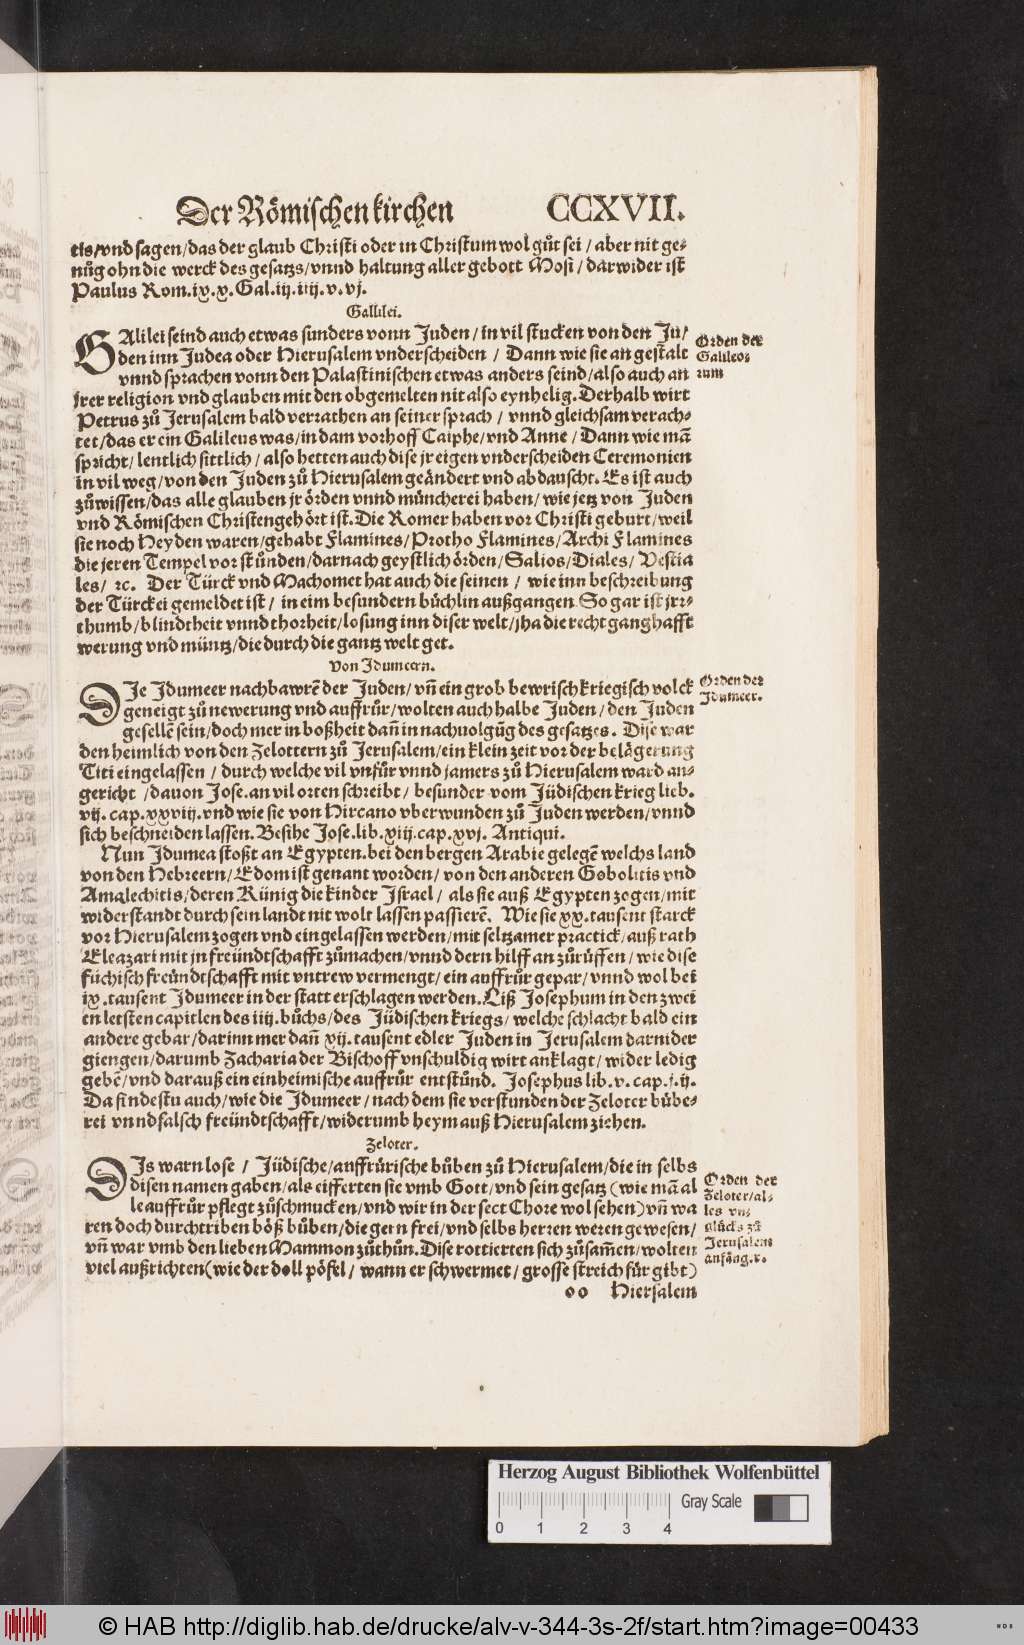 Der Römischen kirchen CCXVII.
tis/vnd sagen/das der glaub Christi oder in Christum wol gůt sei / aber nit ge-
nůg ohn die werck des gesatzs/vnnd haltung aller gebott Mosi / darwider ist
Paulus Rom.ix.x.Gal.iij.iiij.v.vj.
Gallilei.
GAlilei seind auch etwas sunders vonn Juden / in vil stucken von den Ju/
den inn Judea oder Hierusalem vnderscheiden / Dann wie sie an gestalt
vnnd sprachen vonn den Palastinischen etwas anders seind/also auch an
jrer religion vnd glauben mit den obgemelten nit also eynhelig. Derhalb wirt
Petrus zů Jerusalem bald verrathen an seiner sprach / vnnd gleichsam verach-
tet/das er ein Galileus was/in dam vorhoff Caiphe/vnd Anne / Dann wie mã
spricht/lentlich sittlich / also hetten auch dise jr eigen vnderscheiden Ceremonien
in vil weg/von den Juden zů Hierusalem geändert vnd abdauscht. Es ist auch
zůwissen/das alle glauben jr örden vnnd müncherei haben/ wie jetz von Juden
vnd Römischen Christen gehört ist. Die Romer haben vor Christi geburt/weil
sie noch Heyden waren/gehabt Flamines/Protho Flamines/Archi Flamines
die jeren Tempel vorstůnden/darnach geystlich örden/Salios/Diales/ Vestia
les/ ꝛc. Der Türck vnd Machomet hat auch die seinen / wie inn beschreibung
der Türckei gemeldet ist / in eim besundern bůchlin außgangen. So gar ist jrr-
thumb/blindtheit vnnd thorheit/losung inn diser welt/jha die recht ganghafft
werung vnd müntz/die durch die gantz welt get.
Von Idumeern.
DJe Idumeer nachbawrẽ der Juden/ vñ ein grob bewrisch kriegisch volck
geneigt zů newerung vnd auffrůr/wolten auch halbe Juden/ den Juden
gesellẽ sein/doch mer in boßheit dañ in nachuolgũg des gesatzes. Dise war
den heimlich von den Zelottern zů Jerusalem/ein klein zeit vor der belägerung
Titi eingelassen / durch welche vil vnfůr vnnd jamers zů Hierusalem ward an-
gericht /dauon Jose.an vil orten schreibt/ besunder vom Jüdischen krieg lieb.
vij. cap.xxviij.vnd wie sie von Hircano vberwunden zů Juden werden/vnnd
sich beschneiden lassen. Besihe Jose.lib.xiij.cap.xvj. Antiqui.
Nun Idumea stoßt an Egypten.bei den bergen Arabie gelegẽ welchs land
von den Hebreern/Edom ist genant worden/ von den anderen Gobolitis vnd
Amalechitis/deren Künig die kinder Israel / als sie auß Egypten zogen/mit
widerstandt durch sein landt nit wolt lassen passierẽ. Wie sie xx.tausent starck
vor Hierusalem zogen vnd eingelassen werden/mit seltzamer practick/auß rath
Eleazari mit jn freündtschafft zůmachen/vnnd dern hilff an zůrůffen/wie dise
füchisch freündtschafft mit vntrew vermengt/ein auffrůr gepar/vnnd wol bei
ix.tausent Idumeer in der statt erschlagen werden. Liß Josephum in den zwei
en letsten capitlen des iiij.bůchs/des Jüdischen kriegs/ welche schlacht bald ein
andere gebar/darinn mer dañ xij.tausent edler Juden in Jerusalem darnider
giengen/darumb Zacharia der Bischoff vnschuldig wirt anklagt/wider ledig
gebẽ/vnd darauß ein einheimische auffrůr entstůnd. Josephus lib.v.cap.j.ij.
Da findestu auch/wie die Idumeer/nach dem sie verstunden der Zeloter bübe-
rei vnnd falsch freündtschafft/widerumb heym auß Hierusalem ziehen.
Zeloter.
DJs warn lose / Jüdische/auffrürische bůben zů Hierusalem/die in selbs
disen namen gaben/als eifferten sie vmb Gott/vnd sein gesatz (wie mã al
le auffrůr pflegt zůschmucken/vnd wir in der sect Chore wol sehen) vñ wa
ren doch durchtriben böß bůben/die gern frei/vnd selbs herren weren gewesen/
vñ war vmb den lieben Mammon zůthůn. Dise rottierten sich zůsam̃en/wolten
viel außrichten(wie der doll pöfel/ wann er schwermet/grosse streich für gibt)
oo Hiersalem
Orden der
Galileo-
rum
Orden der
Idumeer.
Orden der
Zeloter/al-
les vn-
glücks zů
Jerusalem
anfäng.ꝛc.
Herzog August Bibliothek Wolfenbüttel
0 1 2 3 4
Gray Scale
© HAB http://diglib.hab.de/drucke/alv-v-344-3s-2f/start.htm?image=00433